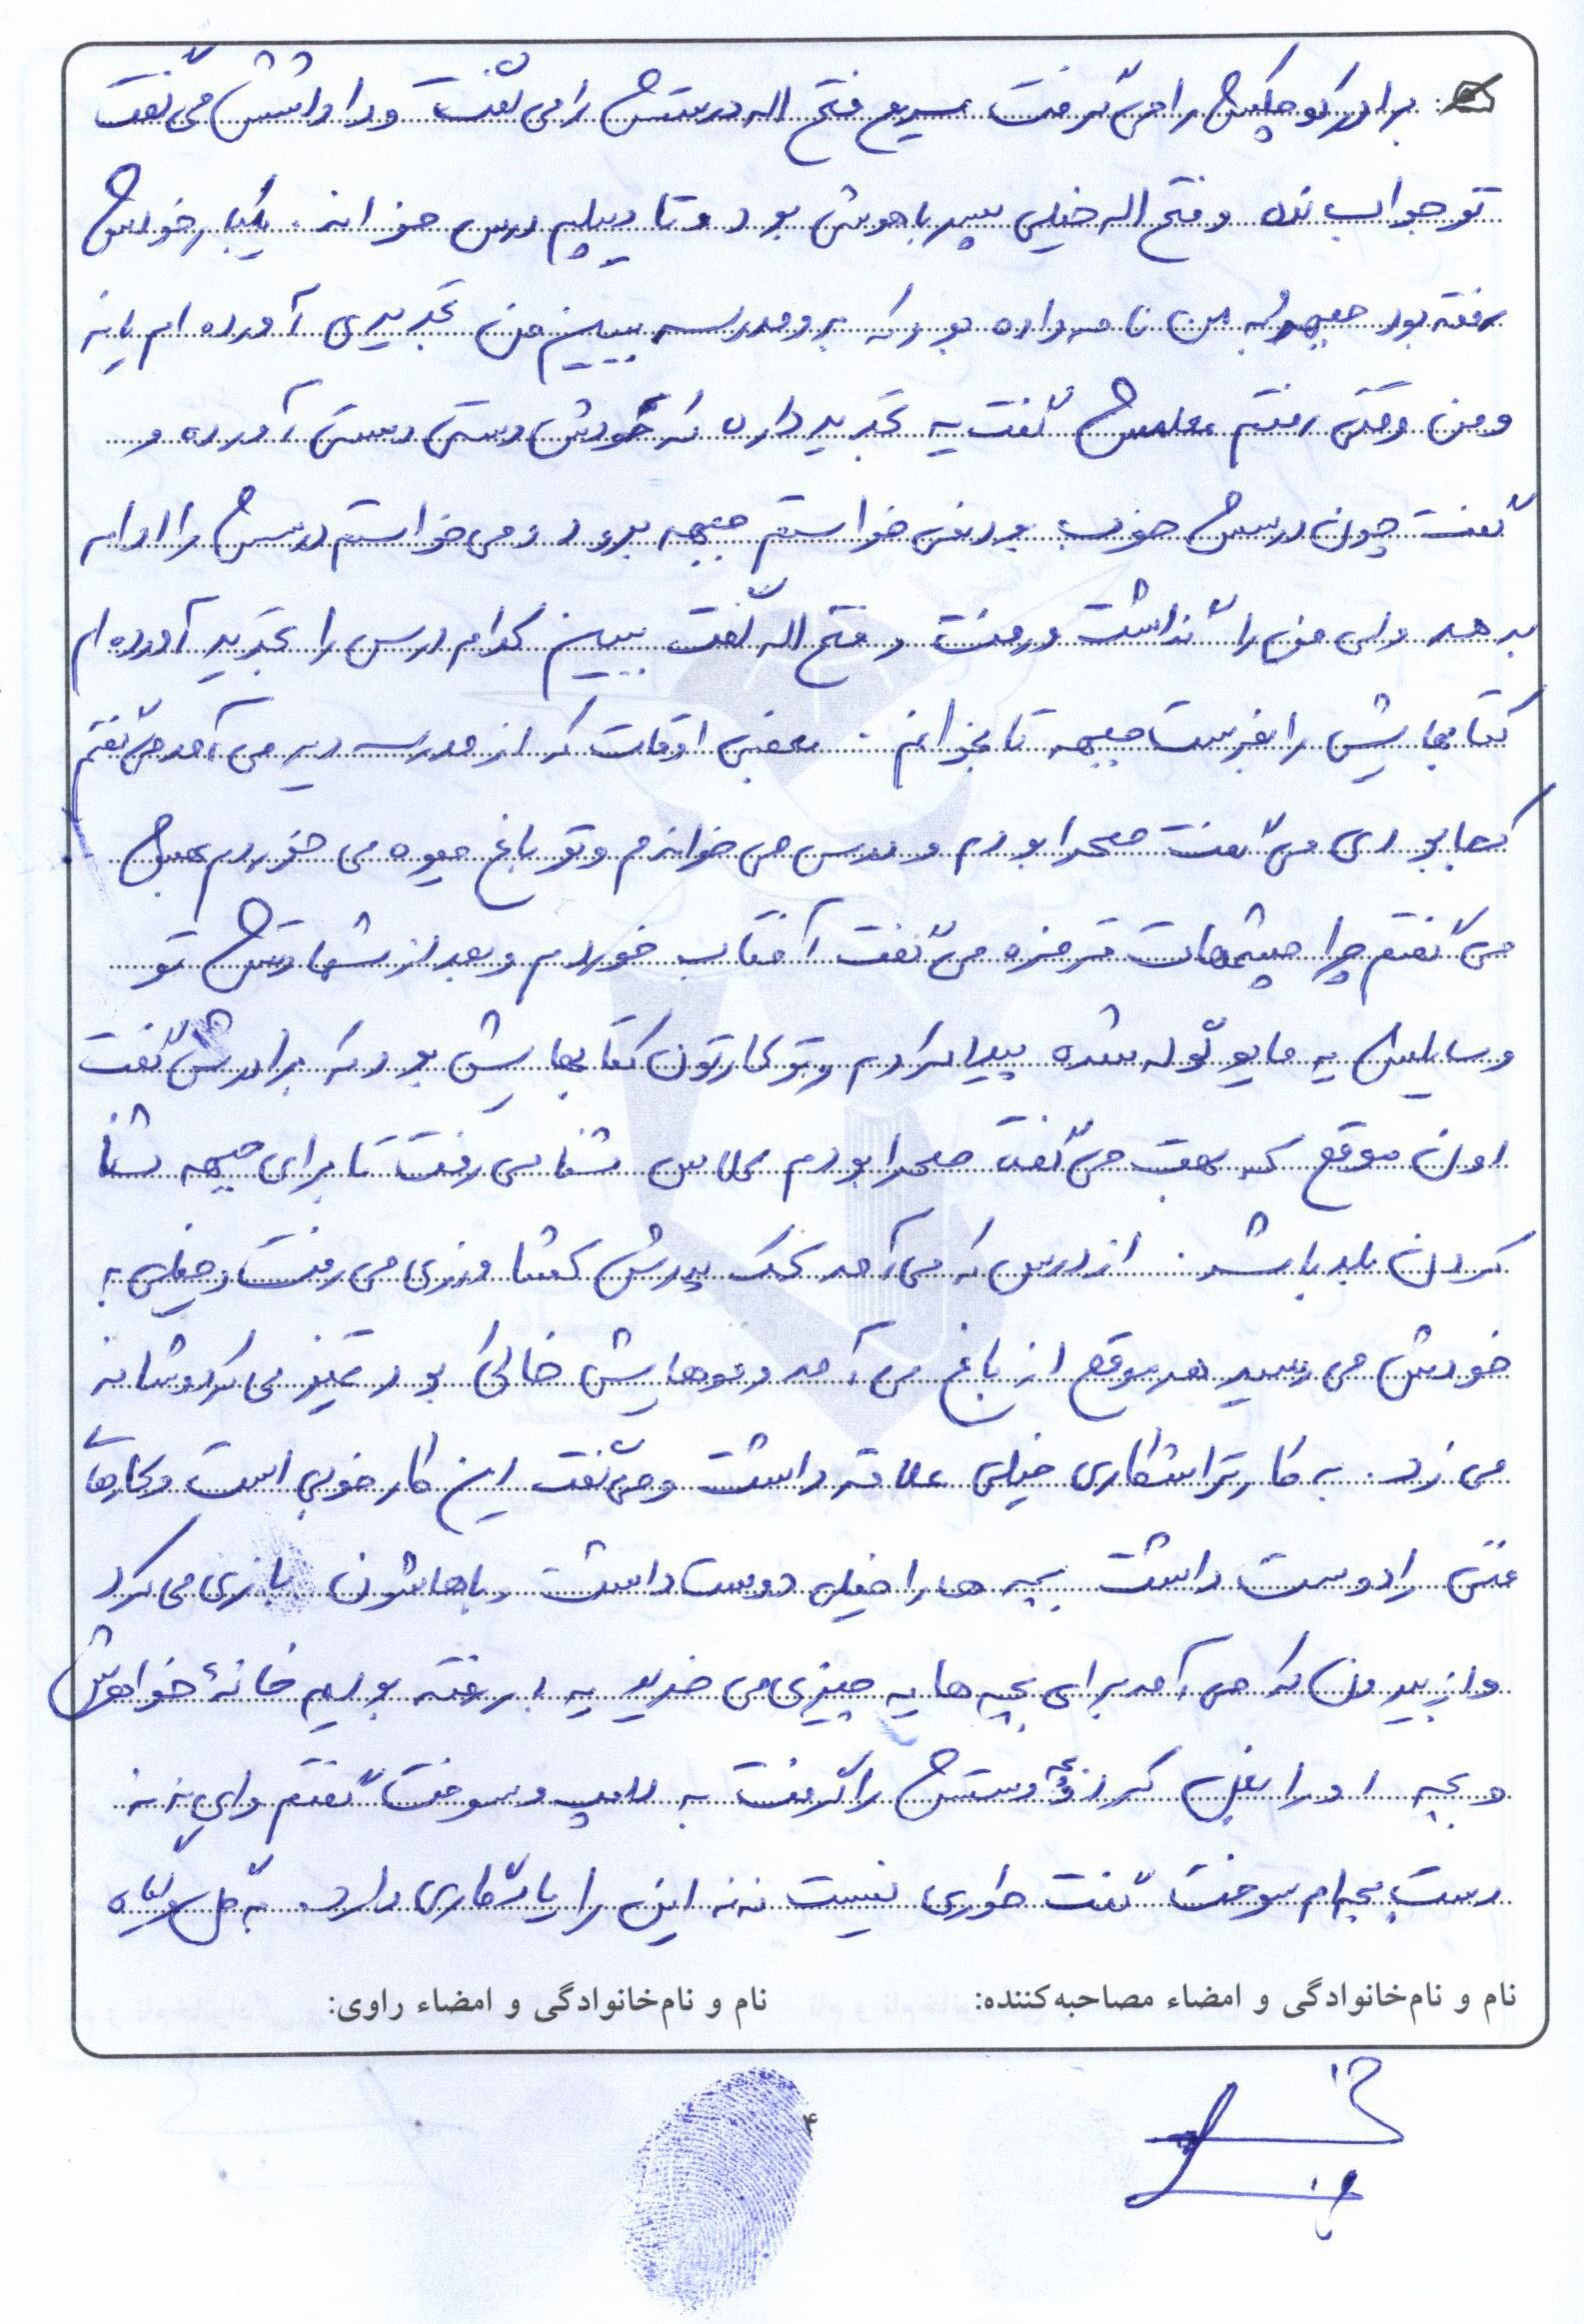 برادر کوچکش را می گرفت سریع فتح اله درستش را می گفت و داداشش می گفت
تو جواب نده و فتح اله خیلی پسر باهوشی بود و تا دیپلم درس خواند. یکبار خودش
رفته بود جبهه و به من نامه داده بود که برو مدرسه ببین من تجدیدی آورده ام یا نه
و من وقتی رفتم معلمش گفت یه تجدید داره که خودش دستی دستی آورده و
گفت چون درسش خوب بود نمی خواستم جبهه برود و می خواستم درسش را ادامه
بدهد ولی من را نداشت و رفت و فتح اله گفت ببین کدام درس را تجدید آورده ام
کتابهایش را بفرست جبهه تا بخوانم. بعضی اوقات که از مدرسه دیر می آمد می گفتم
کجا بودی می گفت صحرا بودم و درس می خواندم و تو باغ میوه می خوردم بهش
می گفتم چرا چشمهات قرمزه می گفت آفتاب خوردم و بعد از شهادتش تو
وسایلش یه مایو گوله شده پیدا کردم و تو کارتون کتابهایش بود که برادرش گفت
اون موقع که بهت می گفت صحرا بودم کلاس شنا می رفت تا برای جبهه شنا
کردن بلد باشد. از درس که می آمد کمک پدرش کشاورزی می رفت و خیلی به
خودش می رسید هر موقع از باغ می آمد و موهایش خاکی بود تمیز می کرد و شانه
می زد. به کار تراشکاری خیلی علاقه داشت و می گفت این کار خوبی است و کارهای
فنی را دوست داشت بچه ها را خیلی دوست داشت باهاشون بازی می کرد
و از بیرون که می آمد برای بچه ها یه چیزی می خرید یه بار رفته بودیم خانهٔ خواهرش
و بچه او را بغل کرد و بچه دستش را گرفت به لامپ و سوخت گفتم وای ننه
دست بچه ام سوخت گفت طوری نیست ننه این را یادگاری دارد.
نام و نام‌خانوادگی و امضاء مصاحبه‌کننده:
نام و نام‌خانوادگی و امضاء راوی:
۴